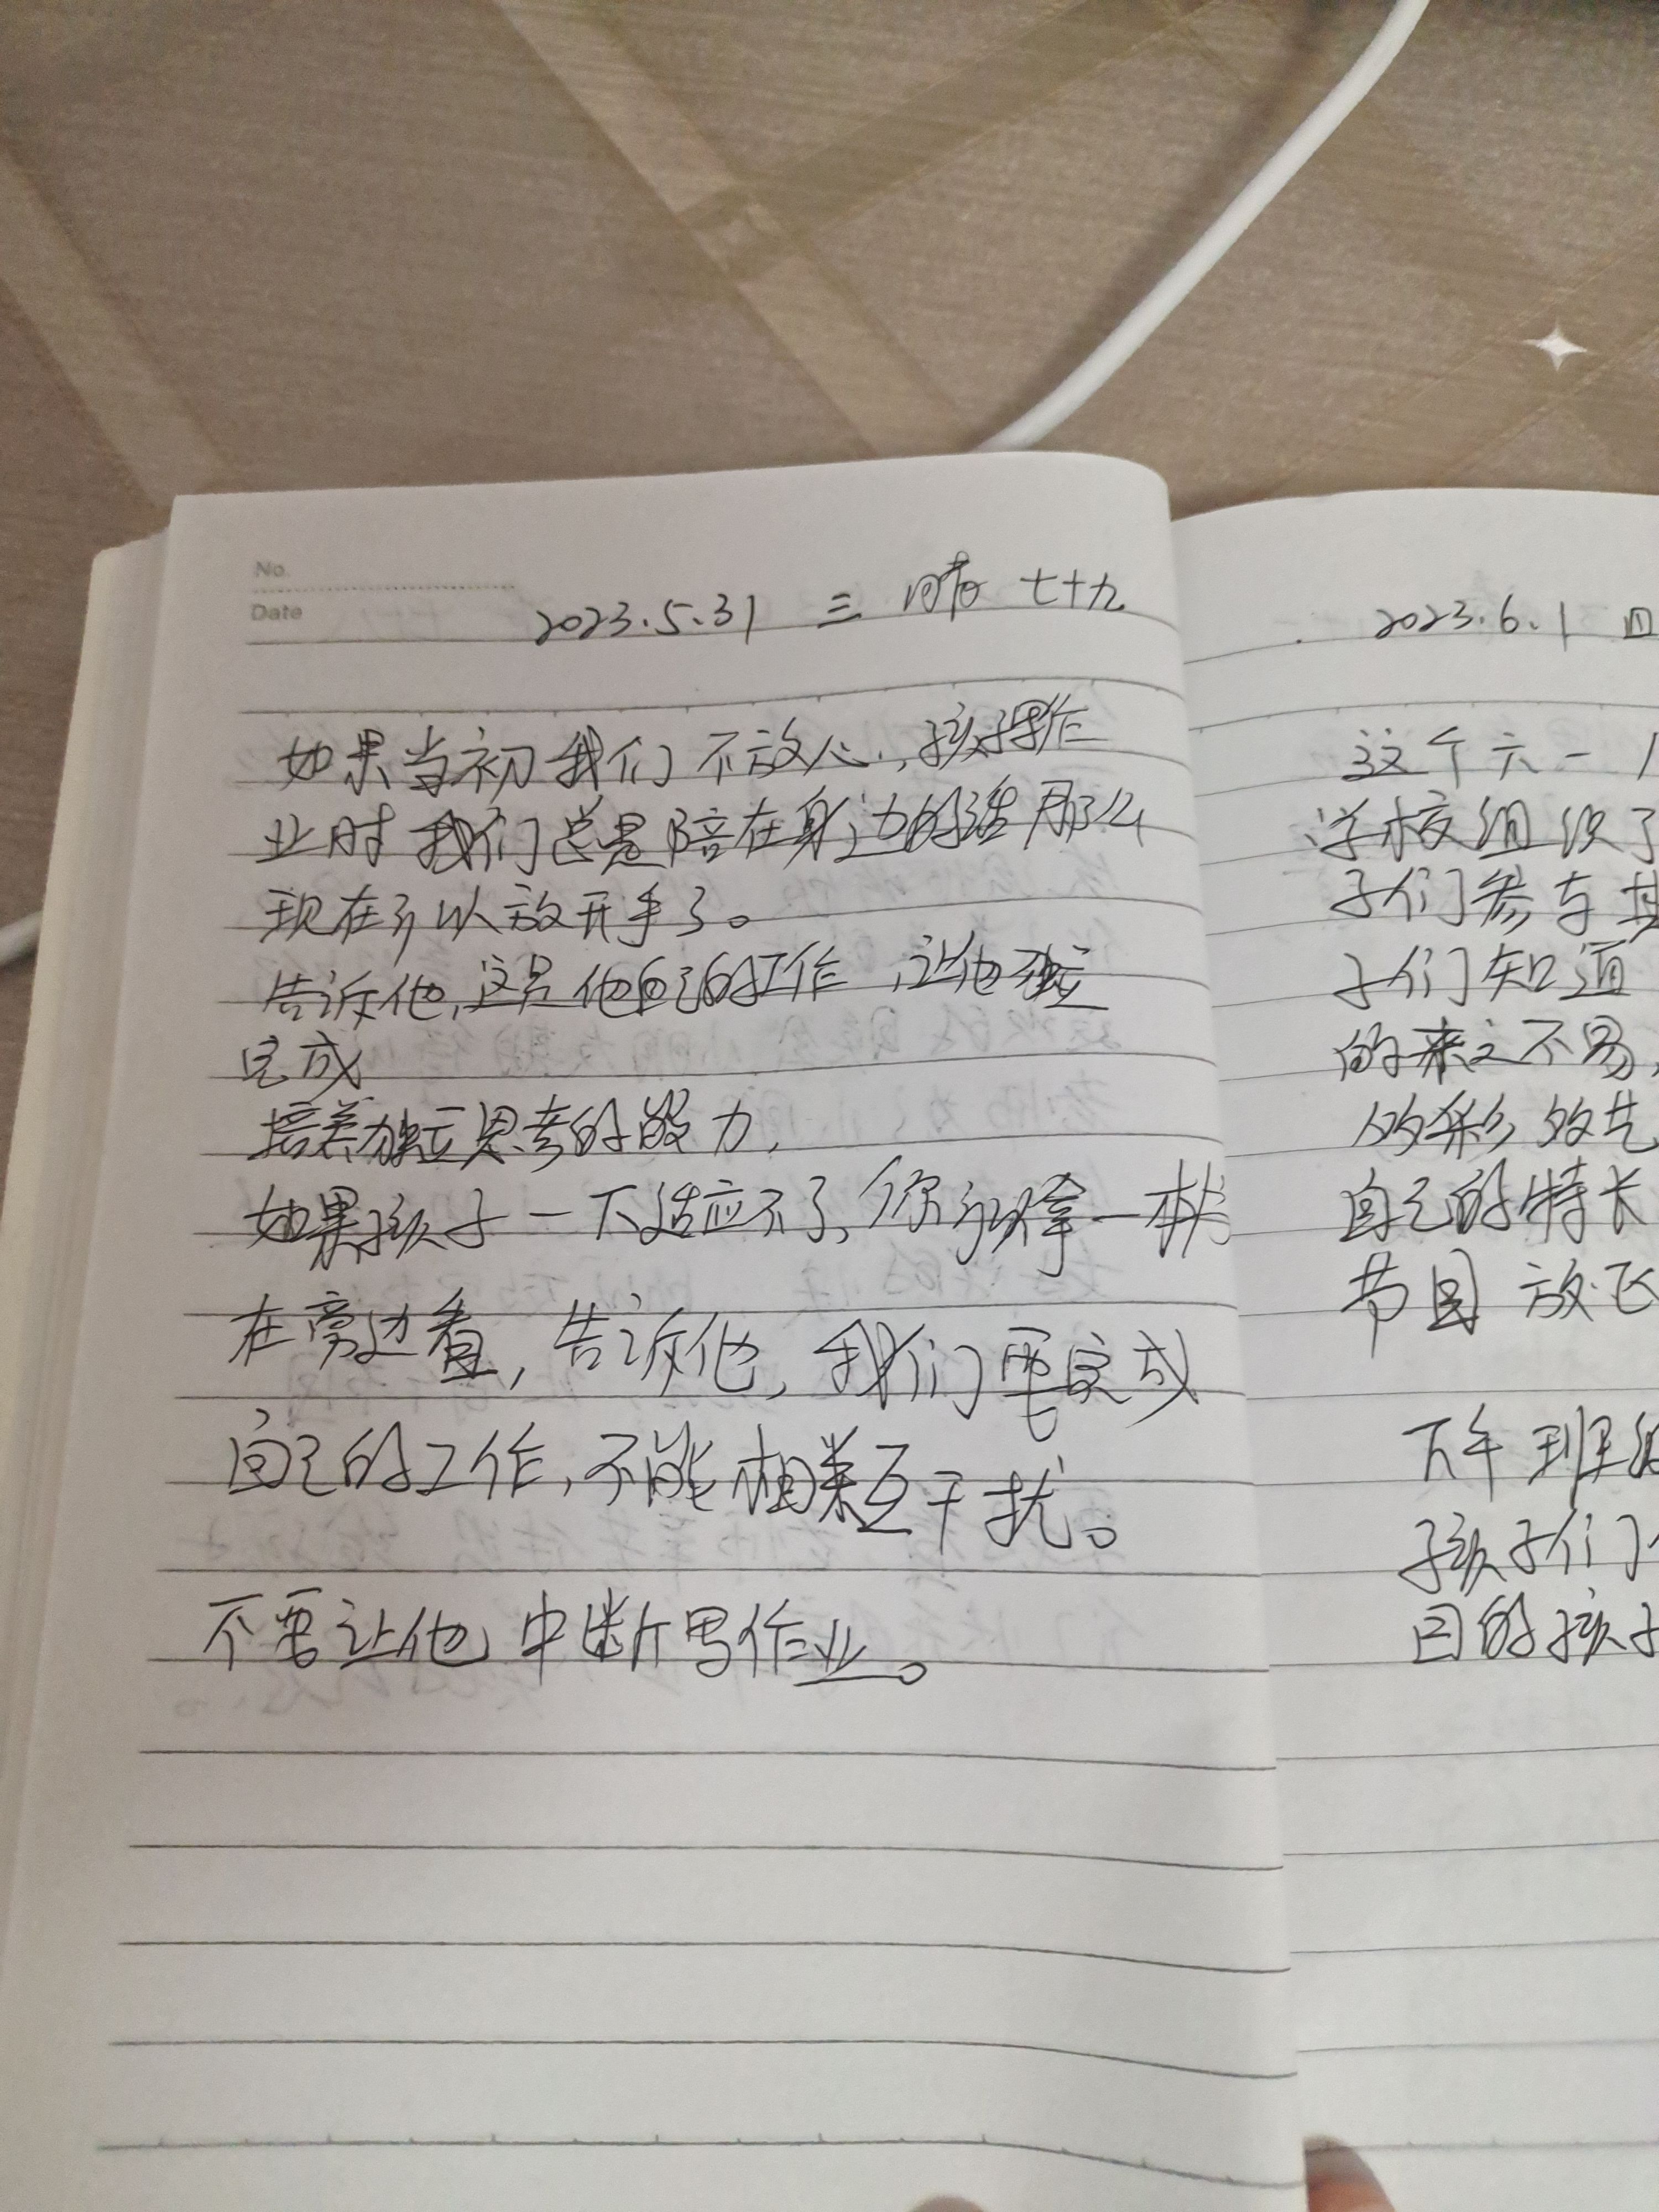 No.
Date
2023.5.31 三 晴 七十九
如果当初我们不放心，孩子写作
业时我们总是陪在身边的话那么
现在可以放开手了。
告诉他，这是他自己的工作，让他独立
完成
培养独立思考的能力，
如果孩子一下适应不了，你可以拿一本书
在旁边看，告诉他，我们要完成
自己的工作，不能相互干扰。
不要让他中断写作业。
2023.6.1 四
这个六一
学校组织了
子们参与其
子们知道
的来之不易，
的彩
自己的特长
节目 放飞
下午班级
孩子们
目的孩子